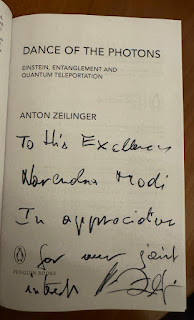 DANCE OF THE PHOTONS
EINSTEIN, ENTANGLEMENT AND
QUANTUM TELEPORTATION
ANTON ZEILINGER
To His Excellency
Narendra Modi
In appreciation
for our joint
interest
PENGUIN BOOKS